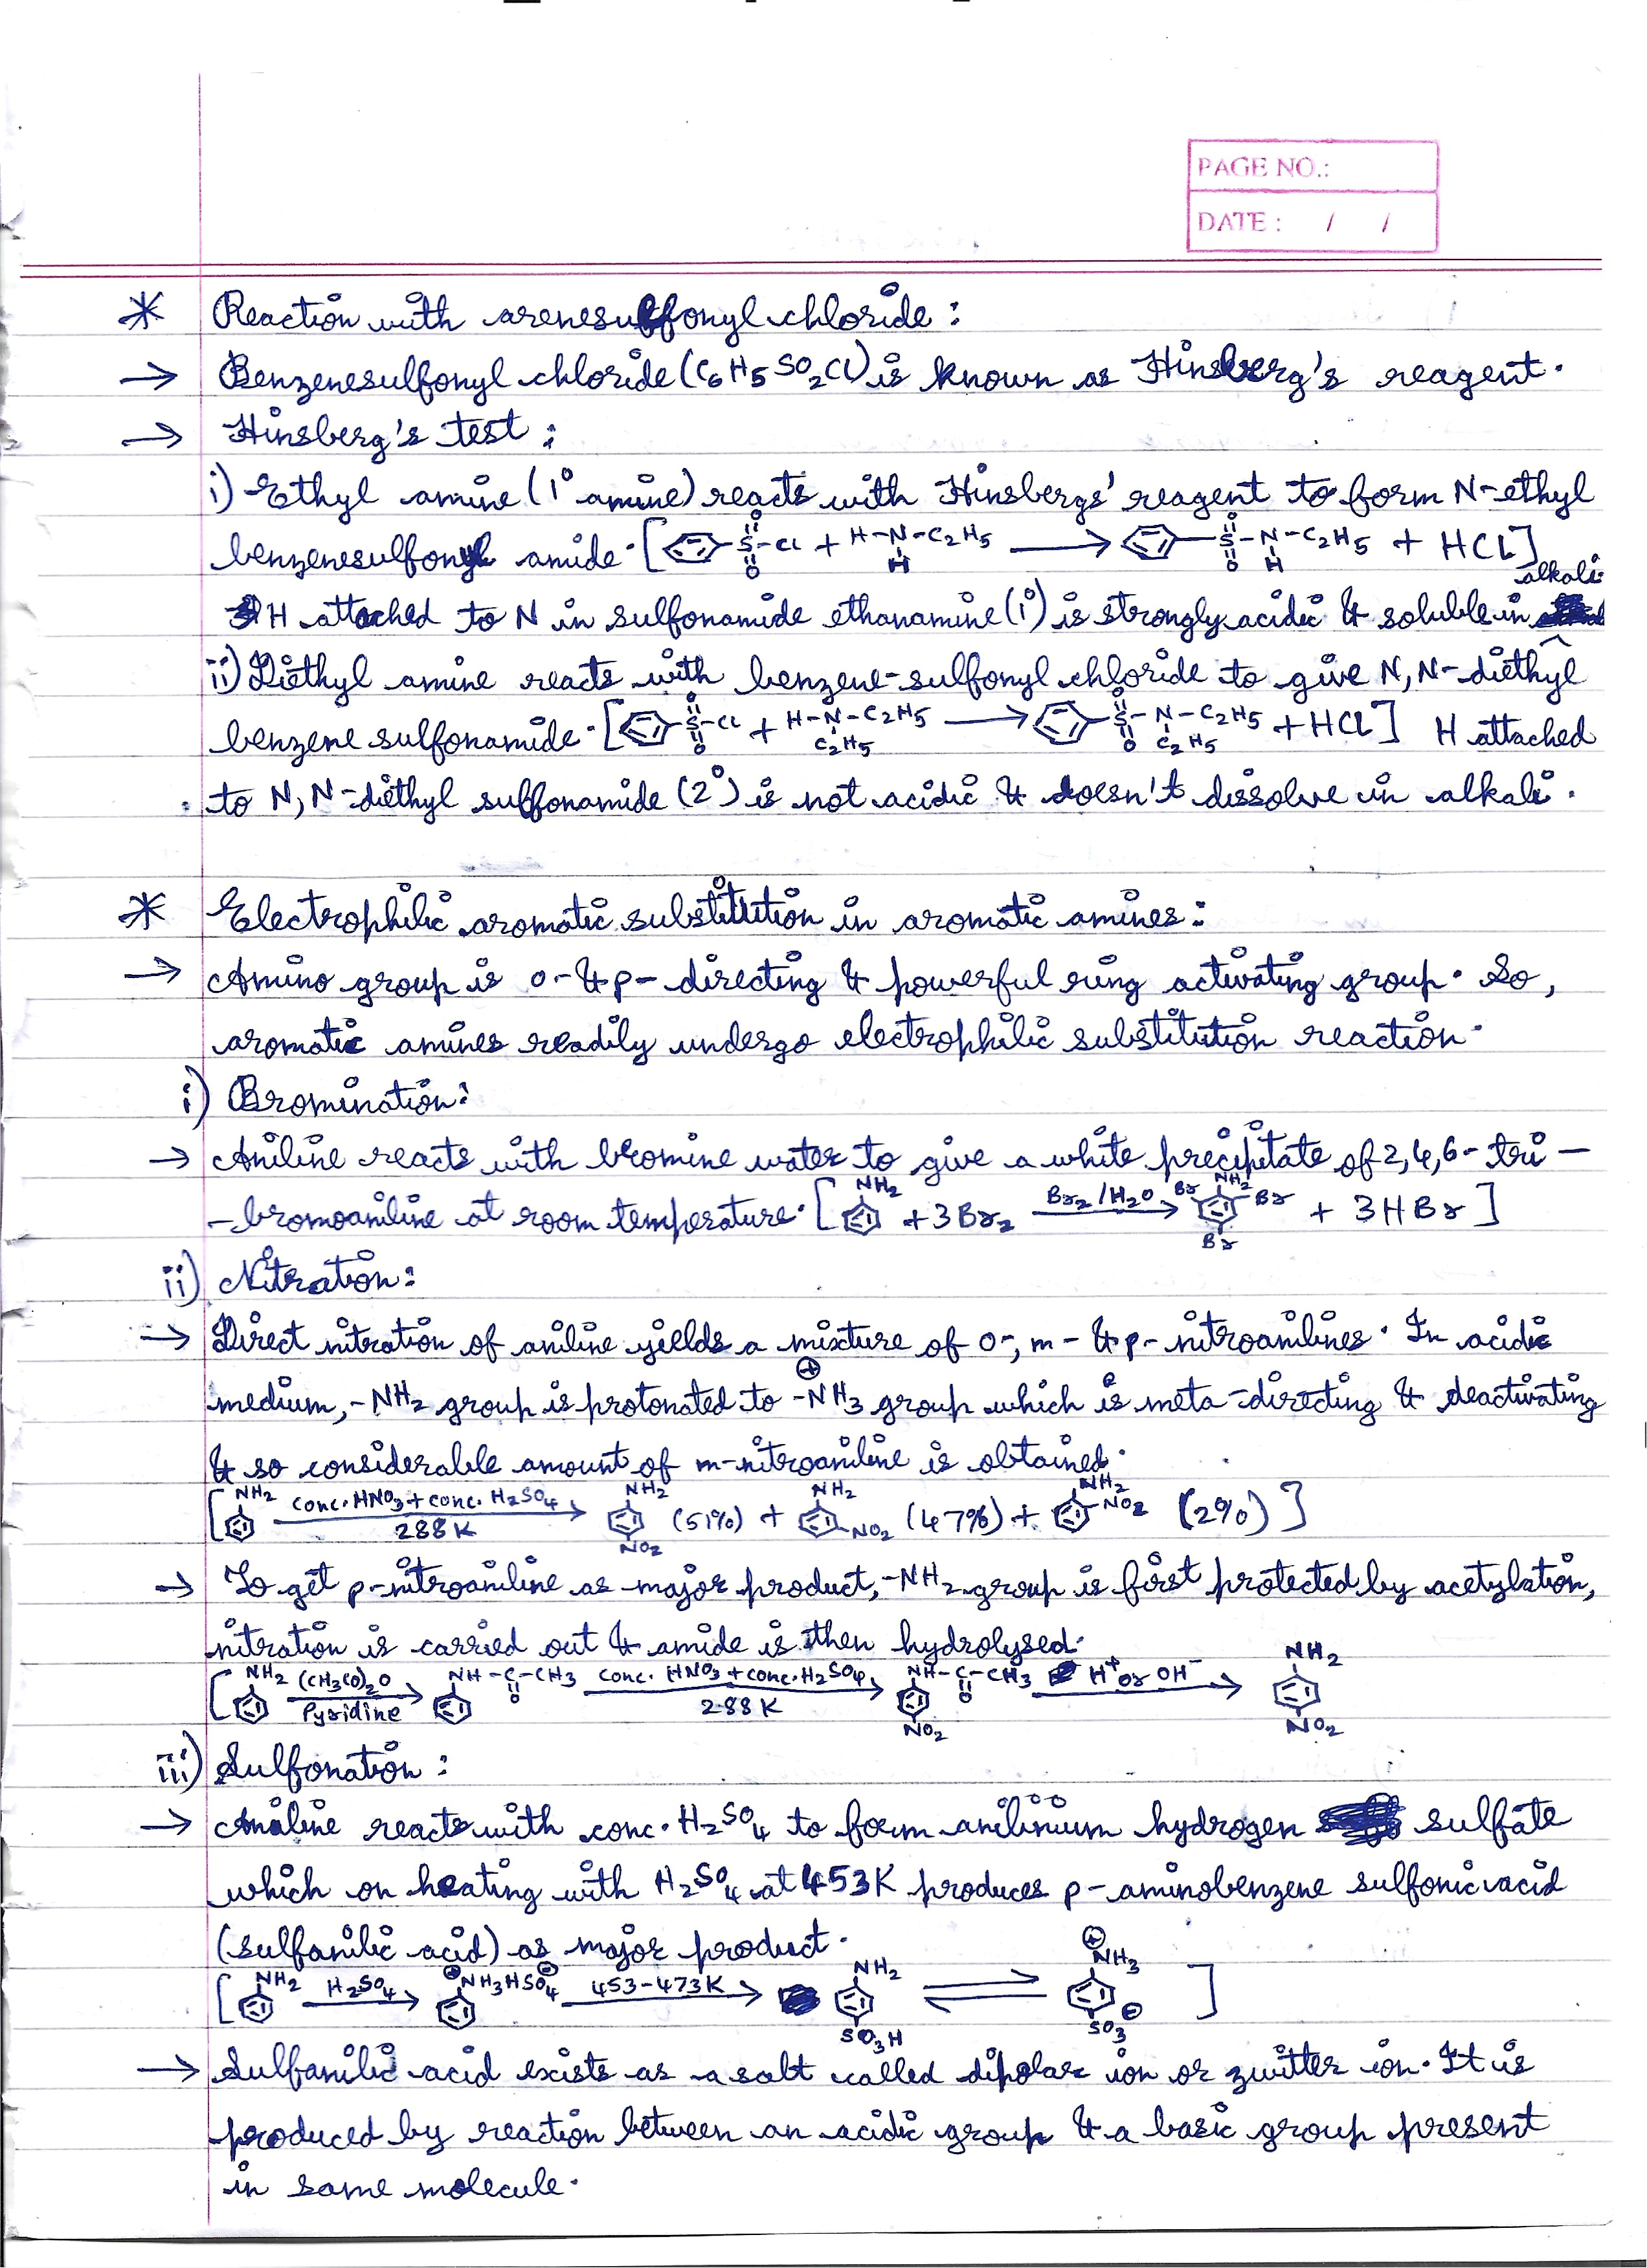 PAGE NO.:
DATE : / /
* Reaction with arenesulfonyl chloride :
→ Benzenesulfonyl chloride (C6H5SO2Cl) is known as Hinsberg's reagent.
→ Hinsberg's test :
i) Ethyl amine (1° amine) reacts with Hinsbergs' reagent to form N-ethyl
benzenesulfonyl amide. [ O=S=O -Cl + H-N-C2H5 H → O=S=O -N-C2H5 H + HCl ]
H attached to N in sulfonamide ethanamine (1°) is strongly acidic & soluble in alkali.
ii) Diethyl amine reacts with benzene-sulfonyl chloride to give N, N-diethyl
benzene sulfonamide. [ O=S=O -Cl + H-N-C2H5 C2H5 → O=S=O -N-C2H5 C2H5 + HCl ] H attached
to N, N-diethyl sulfonamide (2°) is not acidic & doesn't dissolve in alkali.
* Electrophilic aromatic substitution in aromatic amines :
→ Amino group is o- & p- directing & powerful ring activating group. So,
aromatic amines readily undergo electrophilic substitution reaction.
i) Bromination :
→ Aniline reacts with bromine water to give a white precipitate of 2,4,6-tri-
-bromoaniline at room temperature. [ NH2 + 3Br2 Br2/H2O → Br NH2 Br Br + 3HBr ]
ii) Nitration :
→ Direct nitration of aniline yields a mixture of o-, m- & p-nitroanilines. In acidic
medium, -NH2 group is protonated to -N⊕H3 group which is meta-directing & deactivating
& so considerable amount of m-nitroaniline is obtained.
[ NH2 conc. HNO3 + conc. H2SO4 → 288 K NH2 NO2 (51%) + NH2 NO2 (47%) + NH2 NO2 (2%) ]
→ To get p-nitroaniline as major product, -NH2 group is first protected by acetylation,
nitration is carried out & amide is then hydrolysed.
[ NH2 (CH3CO)2O → Pyridine NH-C-CH3 O conc. HNO3 + conc. H2SO4 → 288 K NH-C-CH3 O NO2 H+ or OH- → NH2 NO2
iii) Sulfonation :
→ Aniline reacts with conc. H2SO4 to form anilinium hydrogen sulfate
which on heating with H2SO4 at 453K produces p-aminobenzene sulfonic acid
(sulfanilic acid) as major product.
[ NH2 H2SO4 → ⊕NH3HSO4⊖ 453-473K → NH2 SO3H ⇌ ⊕NH3 SO3⊖ ]
→ Sulfanilic acid exists as a salt called dipolar ion or zwitter ion. It is
produced by reaction between an acidic group & a basic group present
in same molecule.